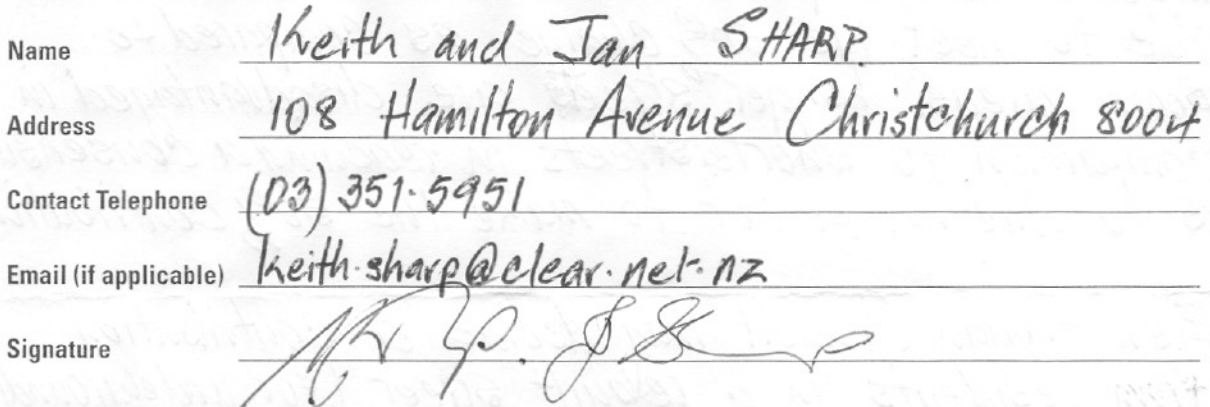 Name Keith and Jan SHARP.
Address 108 Hamilton Avenue Christchurch 8004
Contact Telephone (03) 351-5951
Email (if applicable) keith.sharp@clear.net.nz
Signature